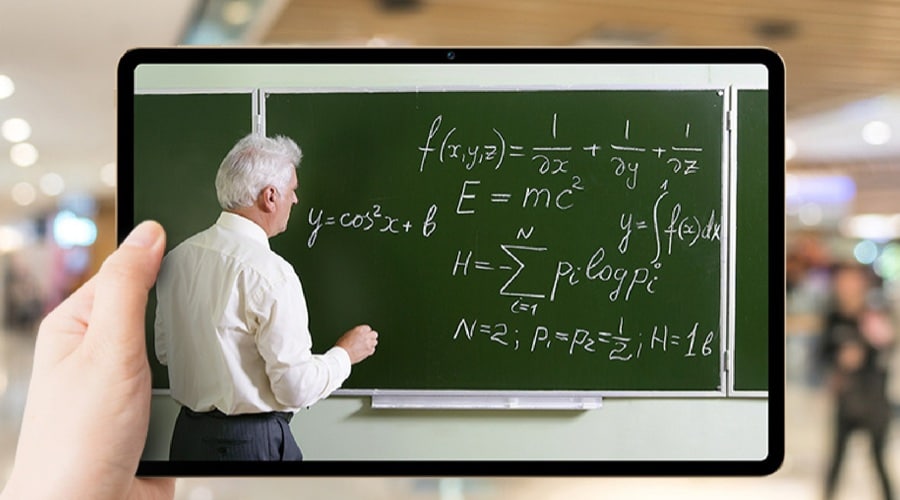 f(x,y,z)=1/∂x + 1/∂y + 1/∂z
E = mc²
y=cos²x+b
y=∫₀¹f(x)dx
H=-∑ᵢ₌₁ᴺ pᵢlogpᵢ
N=2; p₁=p₂=1/2; H=1b